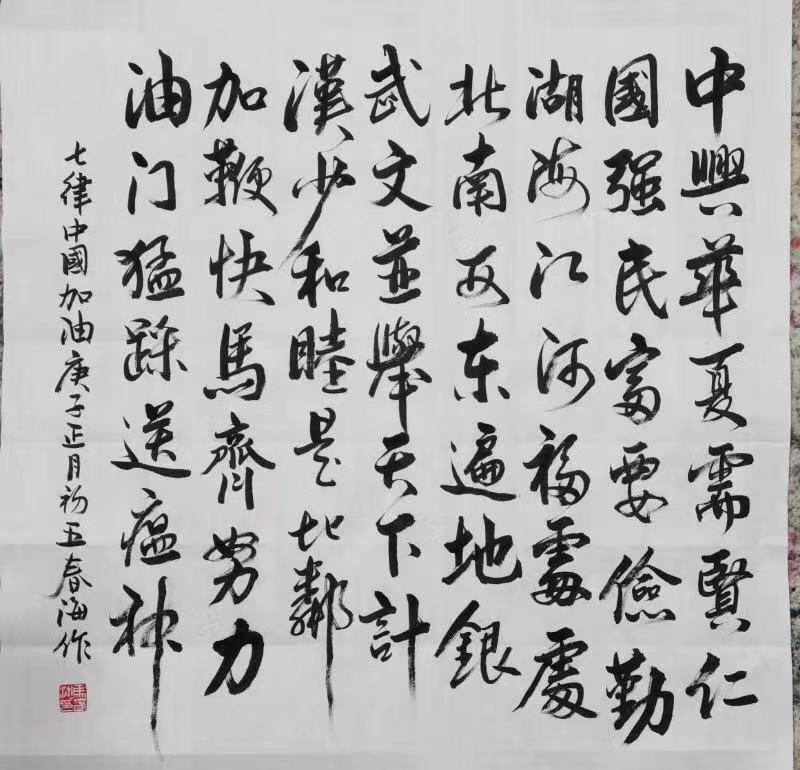 中興華夏需賢仁
國强民富要儉勤
湖海江河福處處
北南西东遍地銀
武文並舉天下計
漢少和睦是比鄰
加鞭快馬齊努力
油门猛踩送瘟神
七律中國加油庚子正月初五春海作